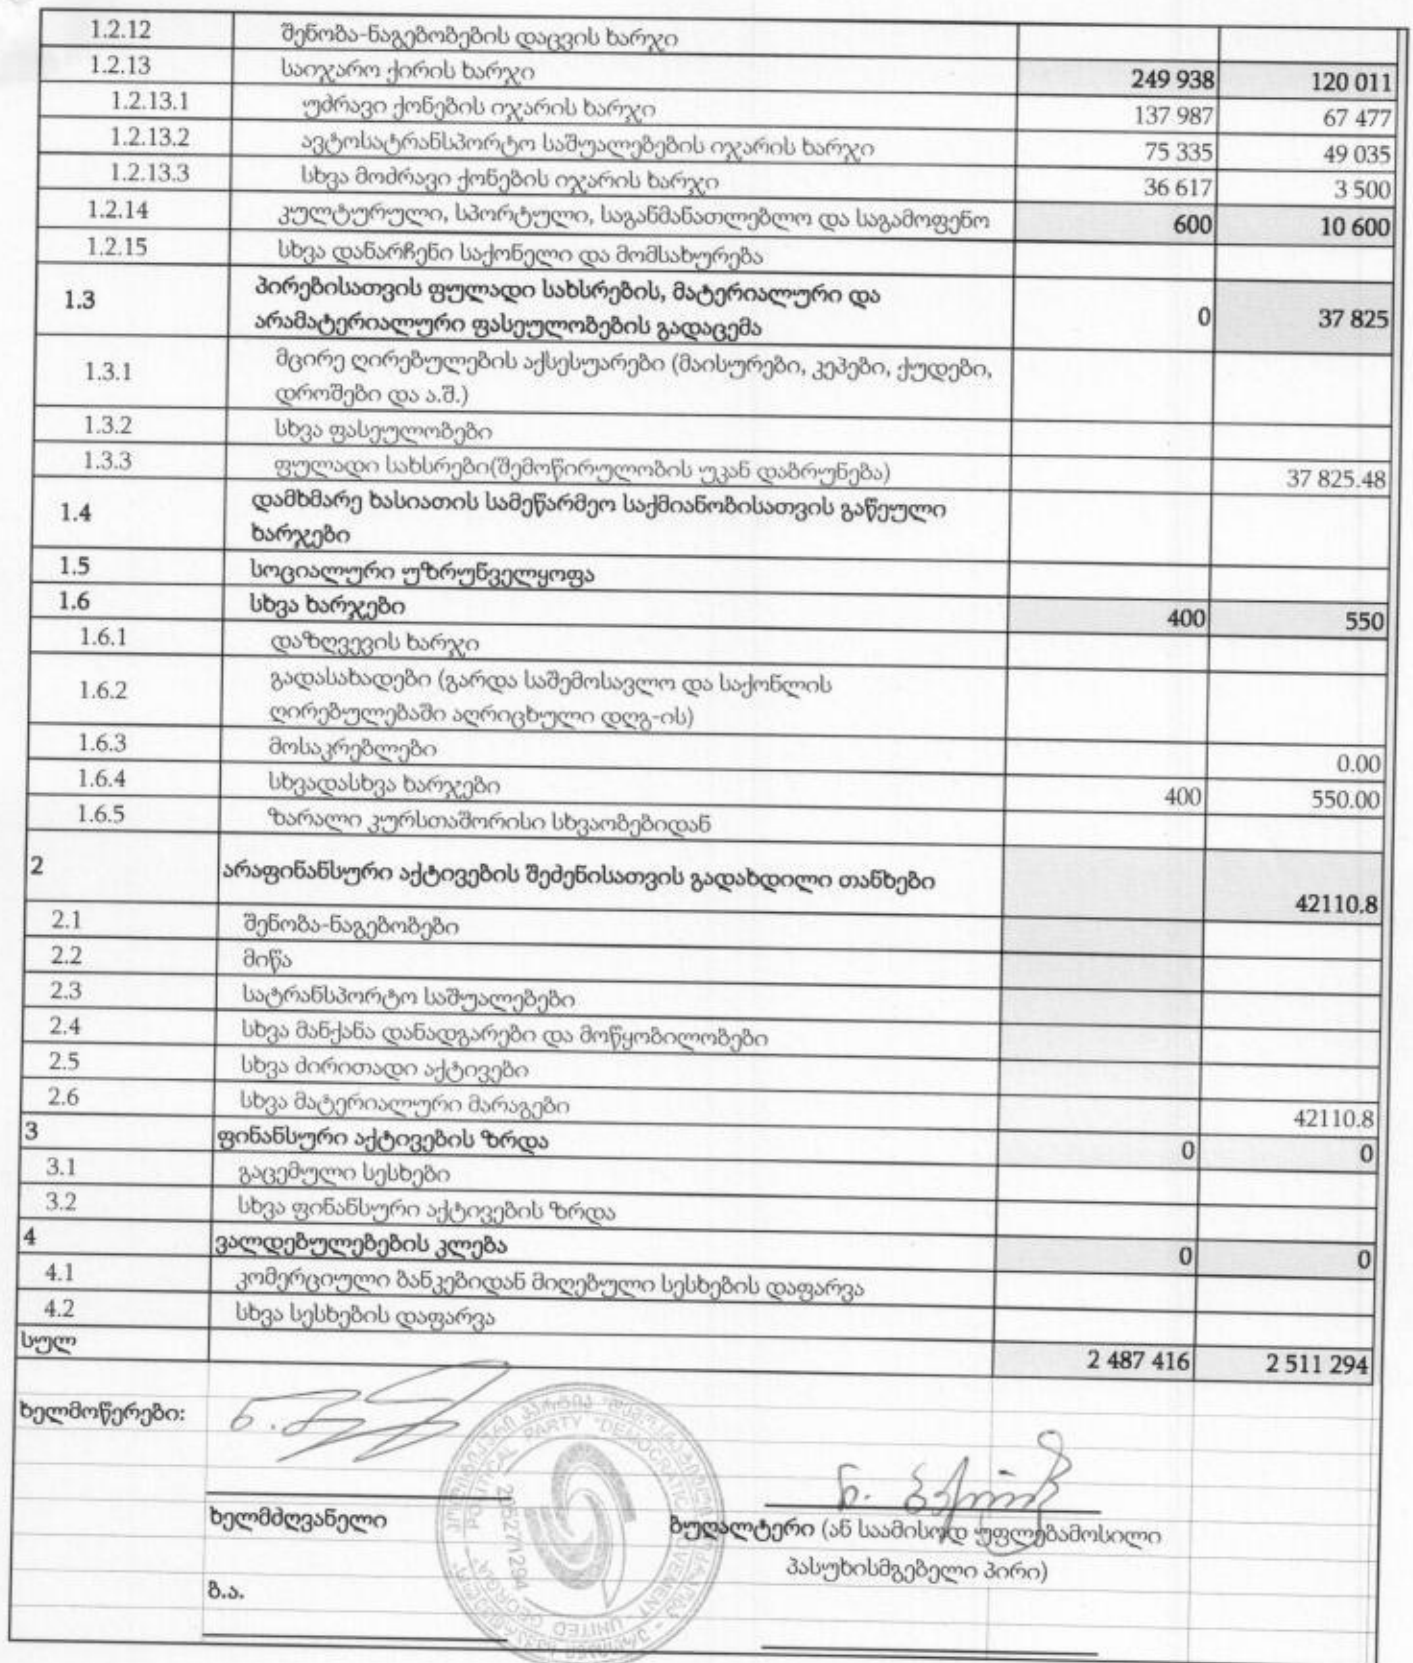 1.2.12 შენობა-ნაგებობების დაცვის ხარჯი
1.2.13 საიჯარო ქირის ხარჯი 249 938 120 011
1.2.13.1 უძრავი ქონების იჯარის ხარჯი 137 987 67 477
1.2.13.2 ავტოსატრანსპორტო საშუალებების იჯარის ხარჯი 75 335 49 035
1.2.13.3 სხვა მოძრავი ქონების იჯარის ხარჯი 36 617 3 500
1.2.14 კულტურული, სპორტული, საგანმანათლებლო და საგამოფენო 600 10 600
1.2.15 სხვა დანარჩენი საქონელი და მომსახურება
1.3 პირებისათვის ფულადი სახსრების, მატერიალური და
არამატერიალური ფასეულობების გადაცემა 0 37 825
1.3.1 მცირე ღირებულების აქსესუარები (მაისურები, კეპები, ქუდები,
დროშები და ა.შ.)
1.3.2 სხვა ფასეულობები
1.3.3 ფულადი სახსრები(შემოწირულობის უკან დაბრუნება) 37 825.48
1.4 დამხმარე ხასიათის სამეწარმეო საქმიანობისათვის გაწეული
ხარჯები
1.5 სოციალური უზრუნველყოფა
1.6 სხვა ხარჯები 400 550
1.6.1 დაზღვევის ხარჯი
1.6.2 გადასახადები (გარდა საშემოსავლო და საქონლის
ღირებულებაში აღრიცხული დღგ-ის)
1.6.3 მოსაკრებლები 0.00
1.6.4 სხვადასხვა ხარჯები 400 550.00
1.6.5 ზარალი კურსთაშორისი სხვაობებიდან
2 არაფინანსური აქტივების შეძენისათვის გადახდილი თანხები 42110.8
2.1 შენობა-ნაგებობები
2.2 მიწა
2.3 სატრანსპორტო საშუალებები
2.4 სხვა მანქანა დანადგარები და მოწყობილობები
2.5 სხვა ძირითადი აქტივები
2.6 სხვა მატერიალური მარაგები 42110.8
3 ფინანსური აქტივების ზრდა 0 0
3.1 გაცემული სესხები
3.2 სხვა ფინანსური აქტივების ზრდა
4 ვალდებულებების კლება 0 0
4.1 კომერციული ბანკებიდან მიღებული სესხების დაფარვა
4.2 სხვა სესხების დაფარვა
სულ 2 487 416 2 511 294
ხელმოწერები:
ხელმძღვანელი
ბუღალტერი (ან საამისოდ უფლებამოსილი
პასუხისმგებელი პირი)
ბ.ა.
POLITICAL PARTY "DEMOCRATIC MOVEMENT - UNITED GEORGIA"
205271294